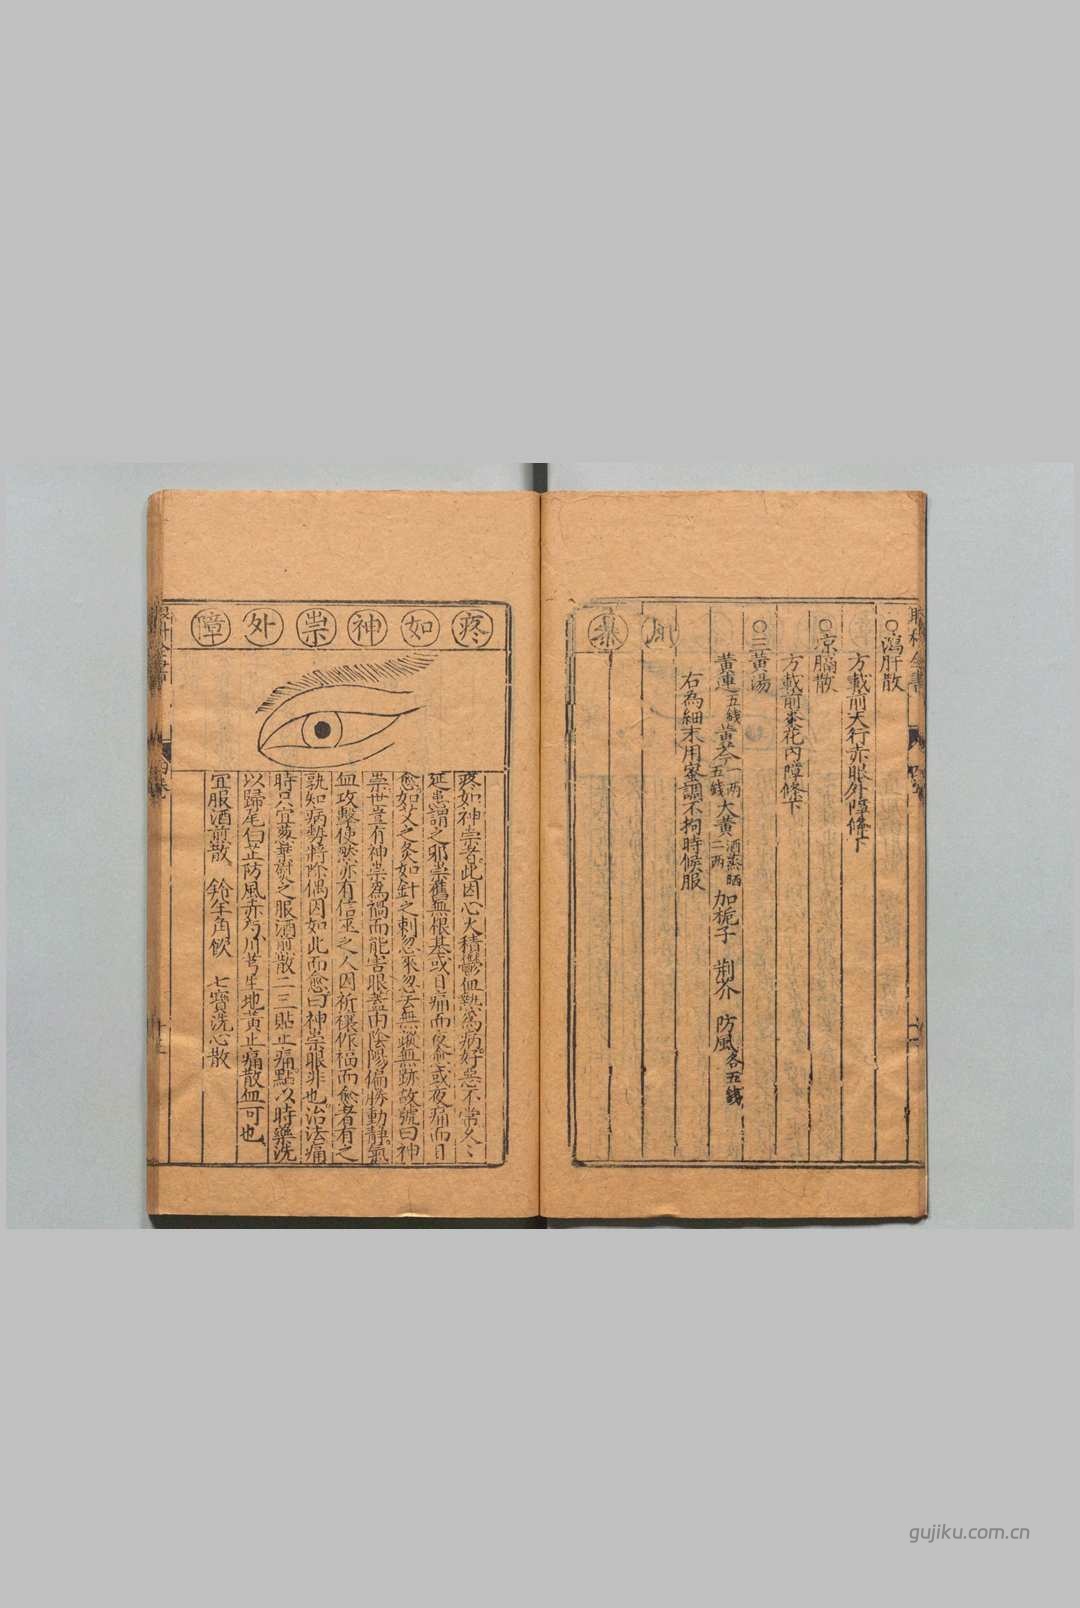 ○瀉肝散
方載前天行赤眼外障條下
○凉膈散
方載前棗花内障條下
○三黃湯
黃連五錢 黃芩一兩五錢 大黃酒蒸晒二兩 加梔子 荆芥 防風各五錢
右為細末用蜜調不拘時候服
疼如神祟外障
疼如神祟者此因心火積鬱血熱為病好惡不常久〻
延患謂之邪祟舊無根基或日痛而夜愈或夜痛而日
愈如艾之灸如針之刺忽來忽去無瘢無跡故號曰神
祟世豈有神祟為禍而能害眼蓋由陰陽偏勝動静氣
血攻擊使然亦有信巫之人因祈禳作福而愈者有之
孰知病勢將除偶因如此而愈曰神祟眼非也治法痛
時只宜葉熨之服酒煎散二三貼止痛點以時藥洗
以歸尾白芷防風赤芍川芎生地黃止痛散血可也
宜服酒煎散 羚羊角飲 七寶洗心散
眼科全書
四卷
gujiku.com.cn